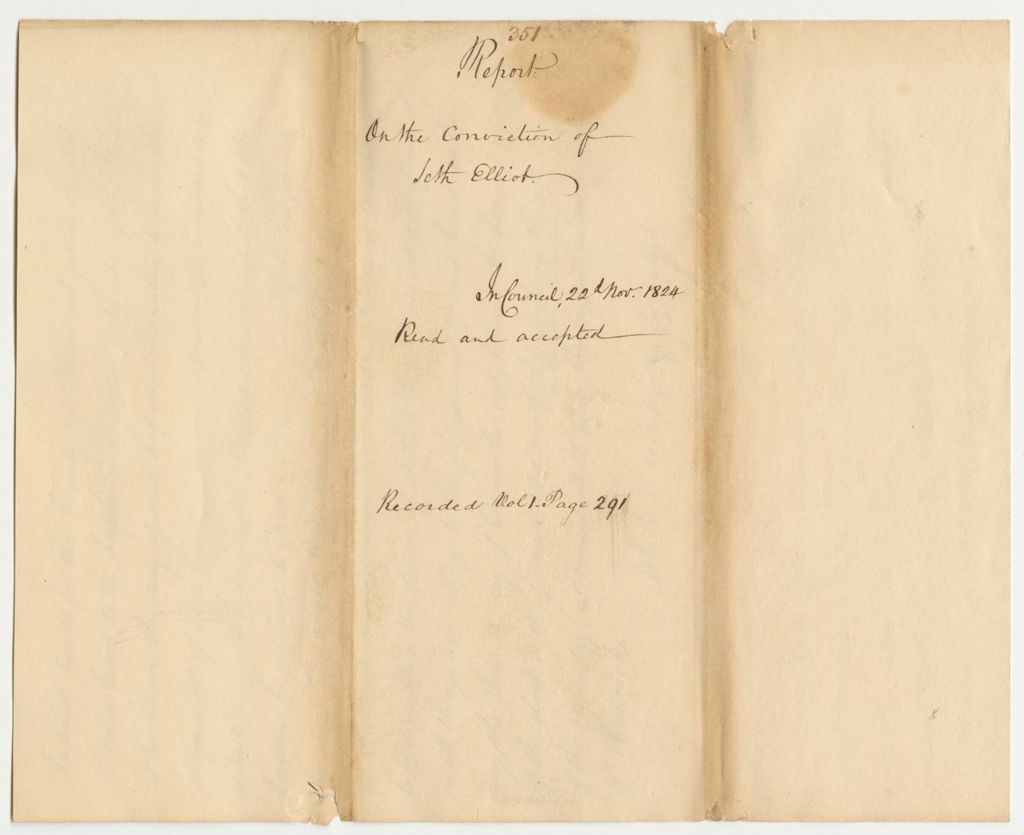 351
Report
On the Conviction of
Seth Elliot.
In Council, 22d Nov. 1824
Read and accepted
Recorded Vol 1. Page 291